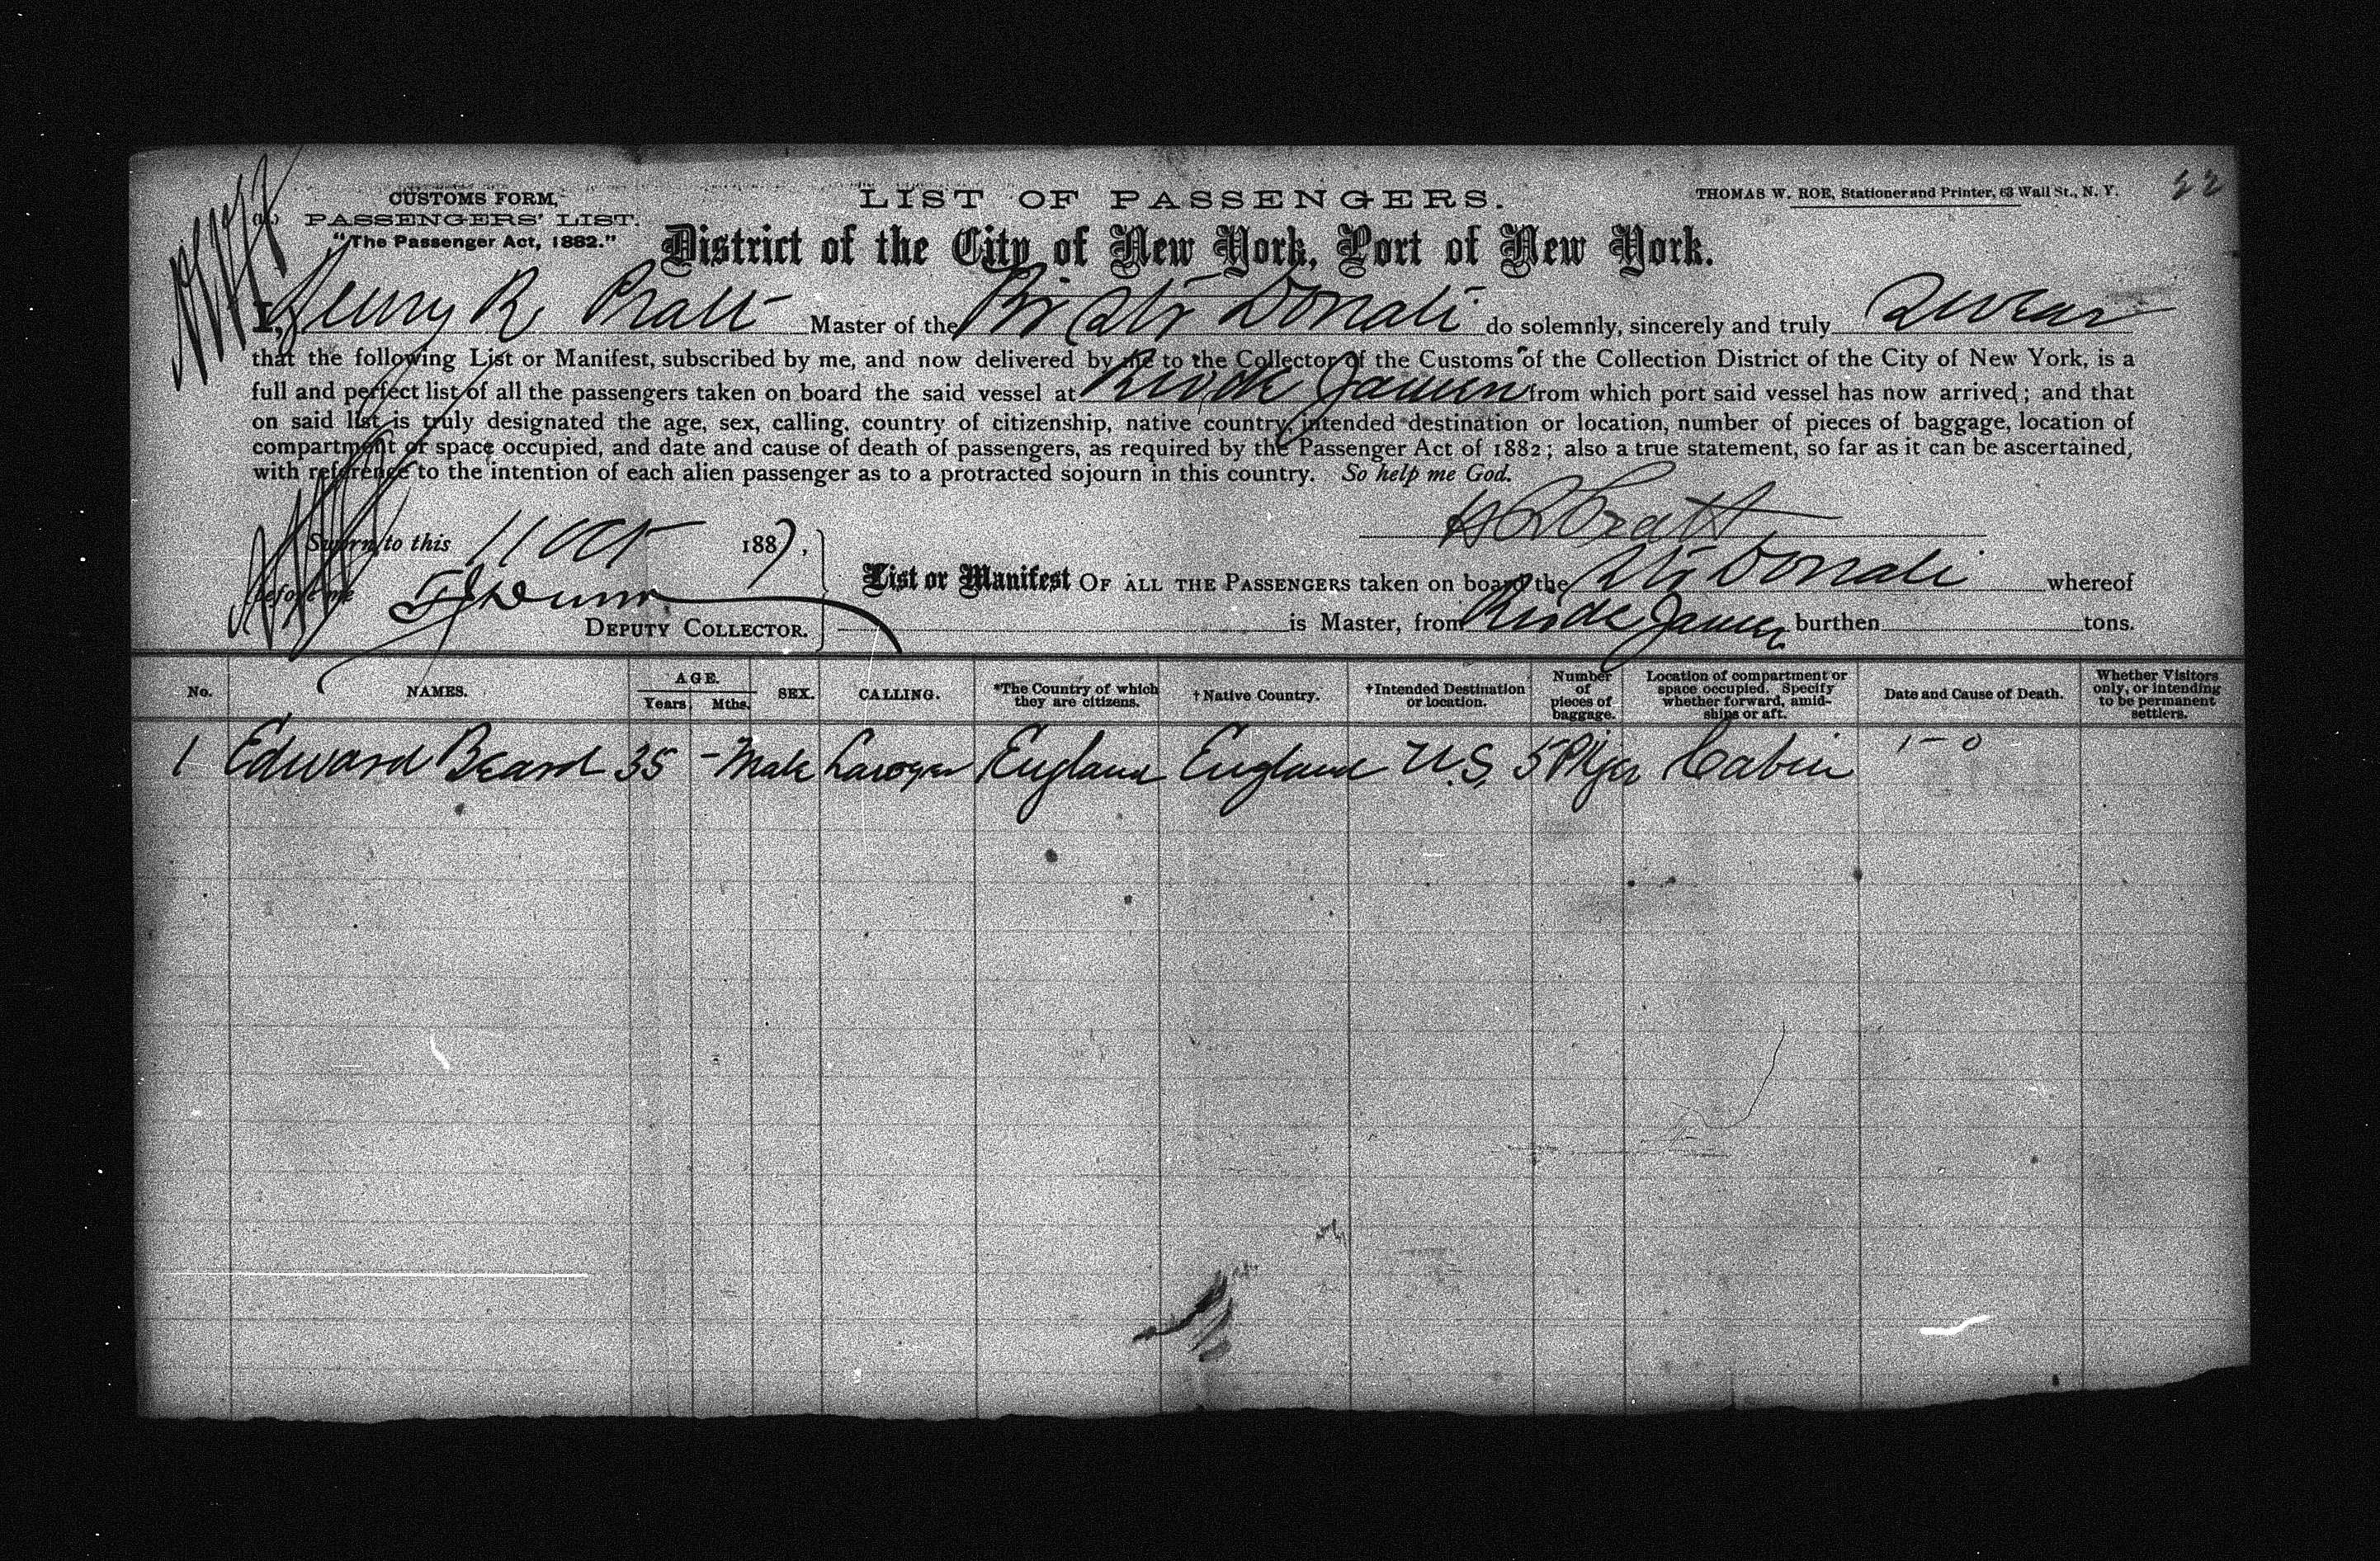 CUSTOMS FORM,
PASSENGERS' LIST.
"The Passenger Act, 1882."
LIST OF PASSENGERS.
THOMAS W. ROE, Stationer and Printer, 63 Wall St., N. Y.
22
District of the City of New York, Port of New York.
I, Henry R Pratt Master of the Br Str Donati do solemnly, sincerely and truly Swear
that the following List or Manifest, subscribed by me, and now delivered by me to the Collector of the Customs of the Collection District of the City of New York, is a
full and perfect list of all the passengers taken on board the said vessel at Rio de Janeiro from which port said vessel has now arrived; and that
on said list is truly designated the age, sex, calling, country of citizenship, native country, intended destination or location, number of pieces of baggage, location of
compartment or space occupied, and date and cause of death of passengers, as required by the Passenger Act of 1882; also a true statement, so far as it can be ascertained,
with reference to the intention of each alien passenger as to a protracted sojourn in this country. So help me God.
H R Pratt
Sworn to this 11 Oct 1887,
before me
DEPUTY COLLECTOR.
List or Manifest OF ALL THE PASSENGERS taken on board the Str Donati whereof
is Master, from Rio de Janeiro burthen tons.
No. NAMES. AGE. Years. Mths. SEX. CALLING. *The Country of which they are citizens. †Native Country. †Intended Destination or location. Number of pieces of baggage. Location of compartment or space occupied. Specify whether forward, amidships or aft. Date and Cause of Death. Whether Visitors only, or intending to be permanent settlers.
1 Edward Beard 35 - Male Lawyer England England U.S. 5 Pkgs Cabin 1 - 0